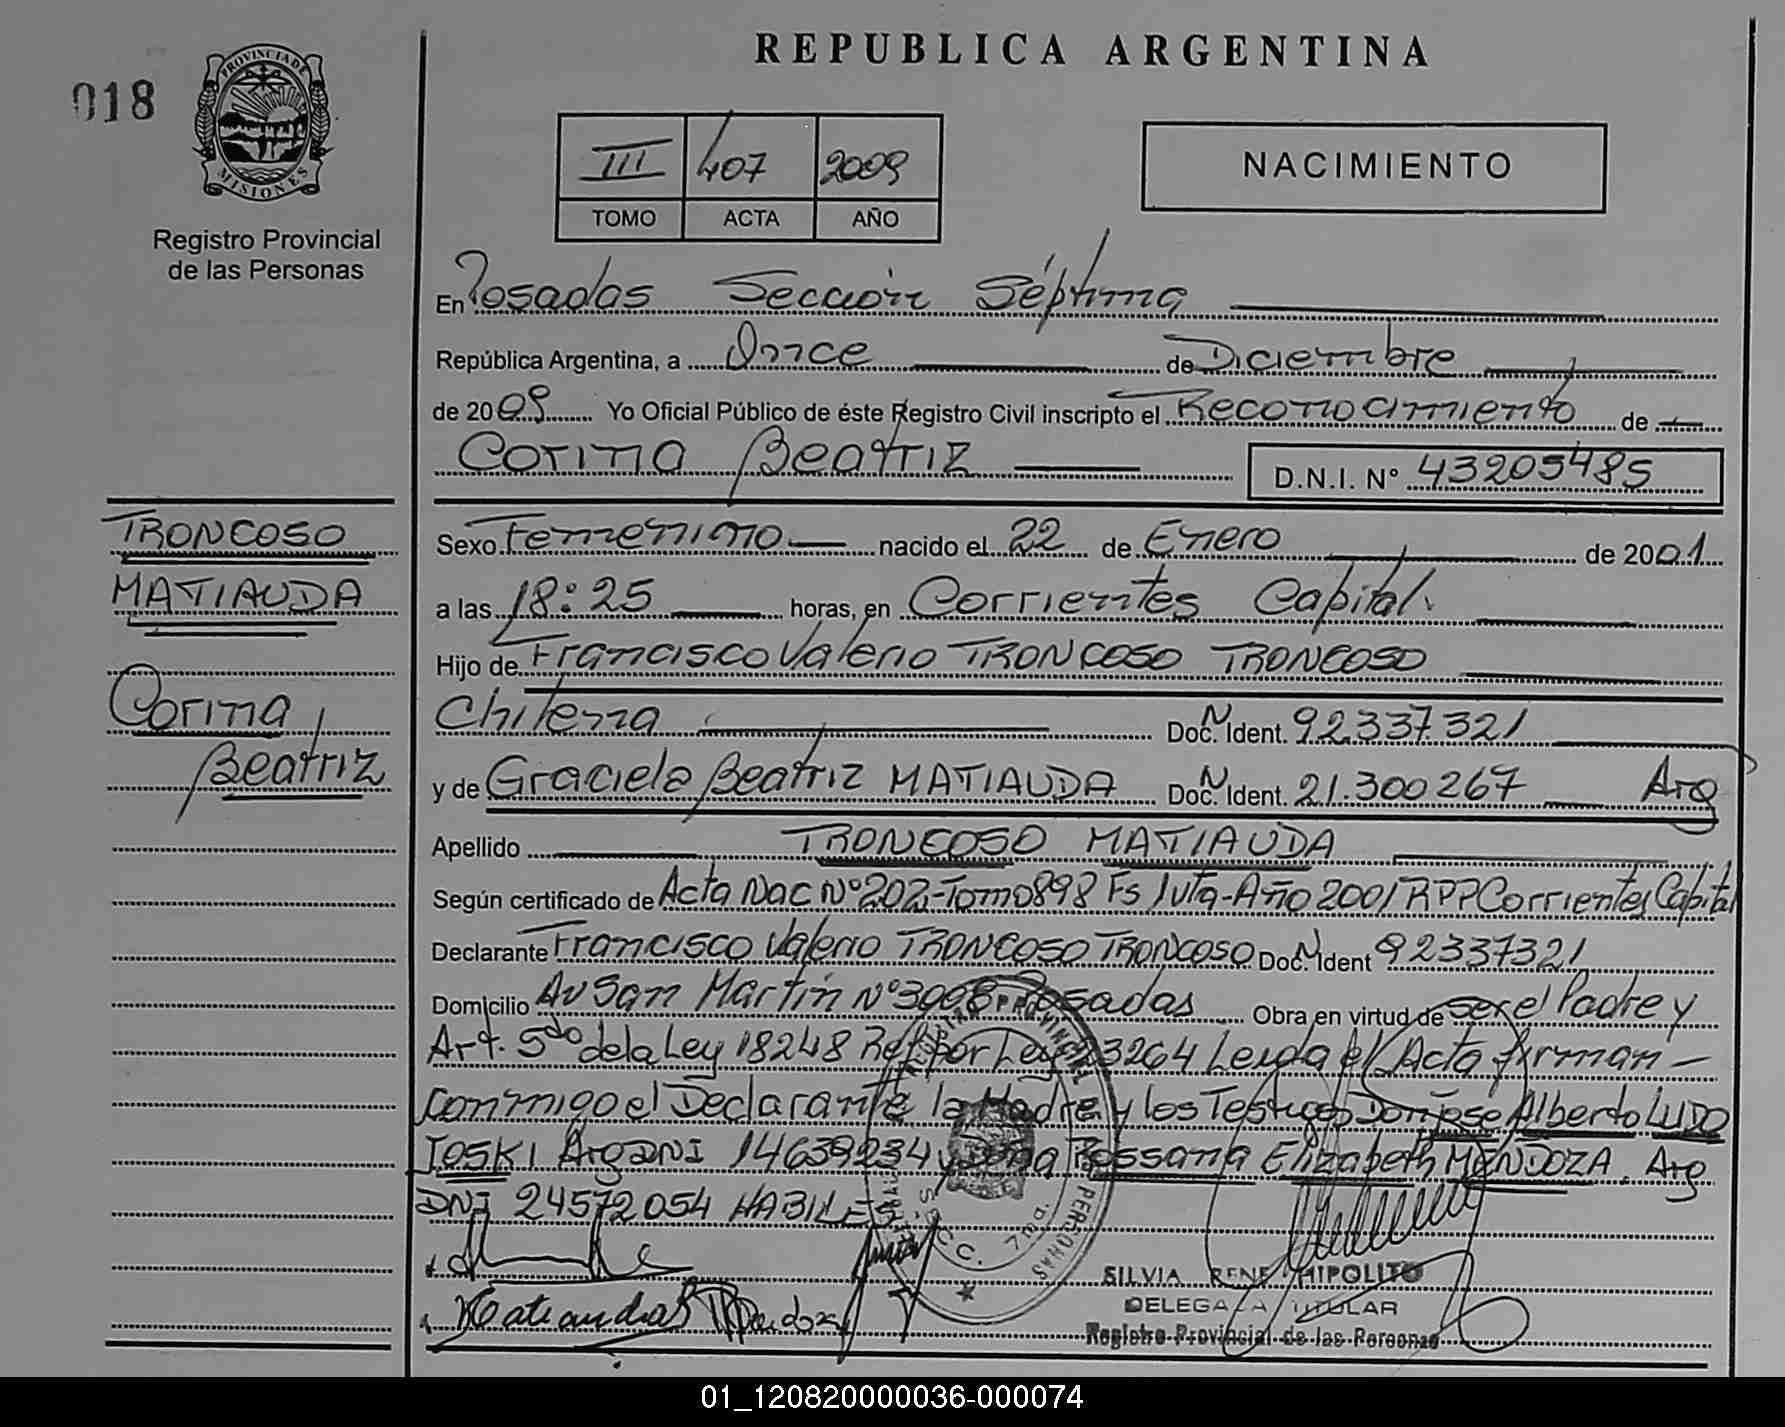 REPUBLICA ARGENTINA
018
PROVINCIA DE
MISIONES
Registro Provincial
de las Personas
III 407 2009
TOMO ACTA AÑO
NACIMIENTO
En Posadas Sección Séptima
República Argentina, a Once de Diciembre
de 2009 Yo Oficial Público de éste Registro Civil inscripto el Reconocimiento de
Corina Beatriz D.N.I. Nº 43205485
TRONCOSO
MATIAUDA
Corina
Beatriz
Sexo Femenino nacido el 22 de Enero de 2001
a las 18:25 horas, en Corrientes Capital.
Hijo de Francisco Valerio TRONCOSO TRONCOSO
Chilena Doc. N Ident. 92337321
y de Graciela Beatriz MATIAUDA Doc. N Ident. 21.300267 Arg
Apellido TRONCOSO MATIAUDA
Según certificado de Acta Nac Nº 202-Tomo 898 Fs 1vta-Año 2001 RPP Corrientes Capital
Declarante Francisco Valerio TRONCOSO TRONCOSO Doc. N Ident 92337321
Domicilio Av San Martín Nº 3008 Posadas Obra en virtud de ser el Padre y
Art. 5do de la Ley 18248 Ref por Ley 23264 Leida el Acta firman
conmigo el Declarante la Madre y los Testigos Don Jose Alberto LUDO
IOSKI Arg DNI 14639234 y Doña Rossana Elizabeth MENDOZA. Arg
DNI 24572054 HABILES
SILVIA RENE HIPOLITO
DELEGADA TITULAR
Registro Provincial de las Personas
01_120820000036-000074